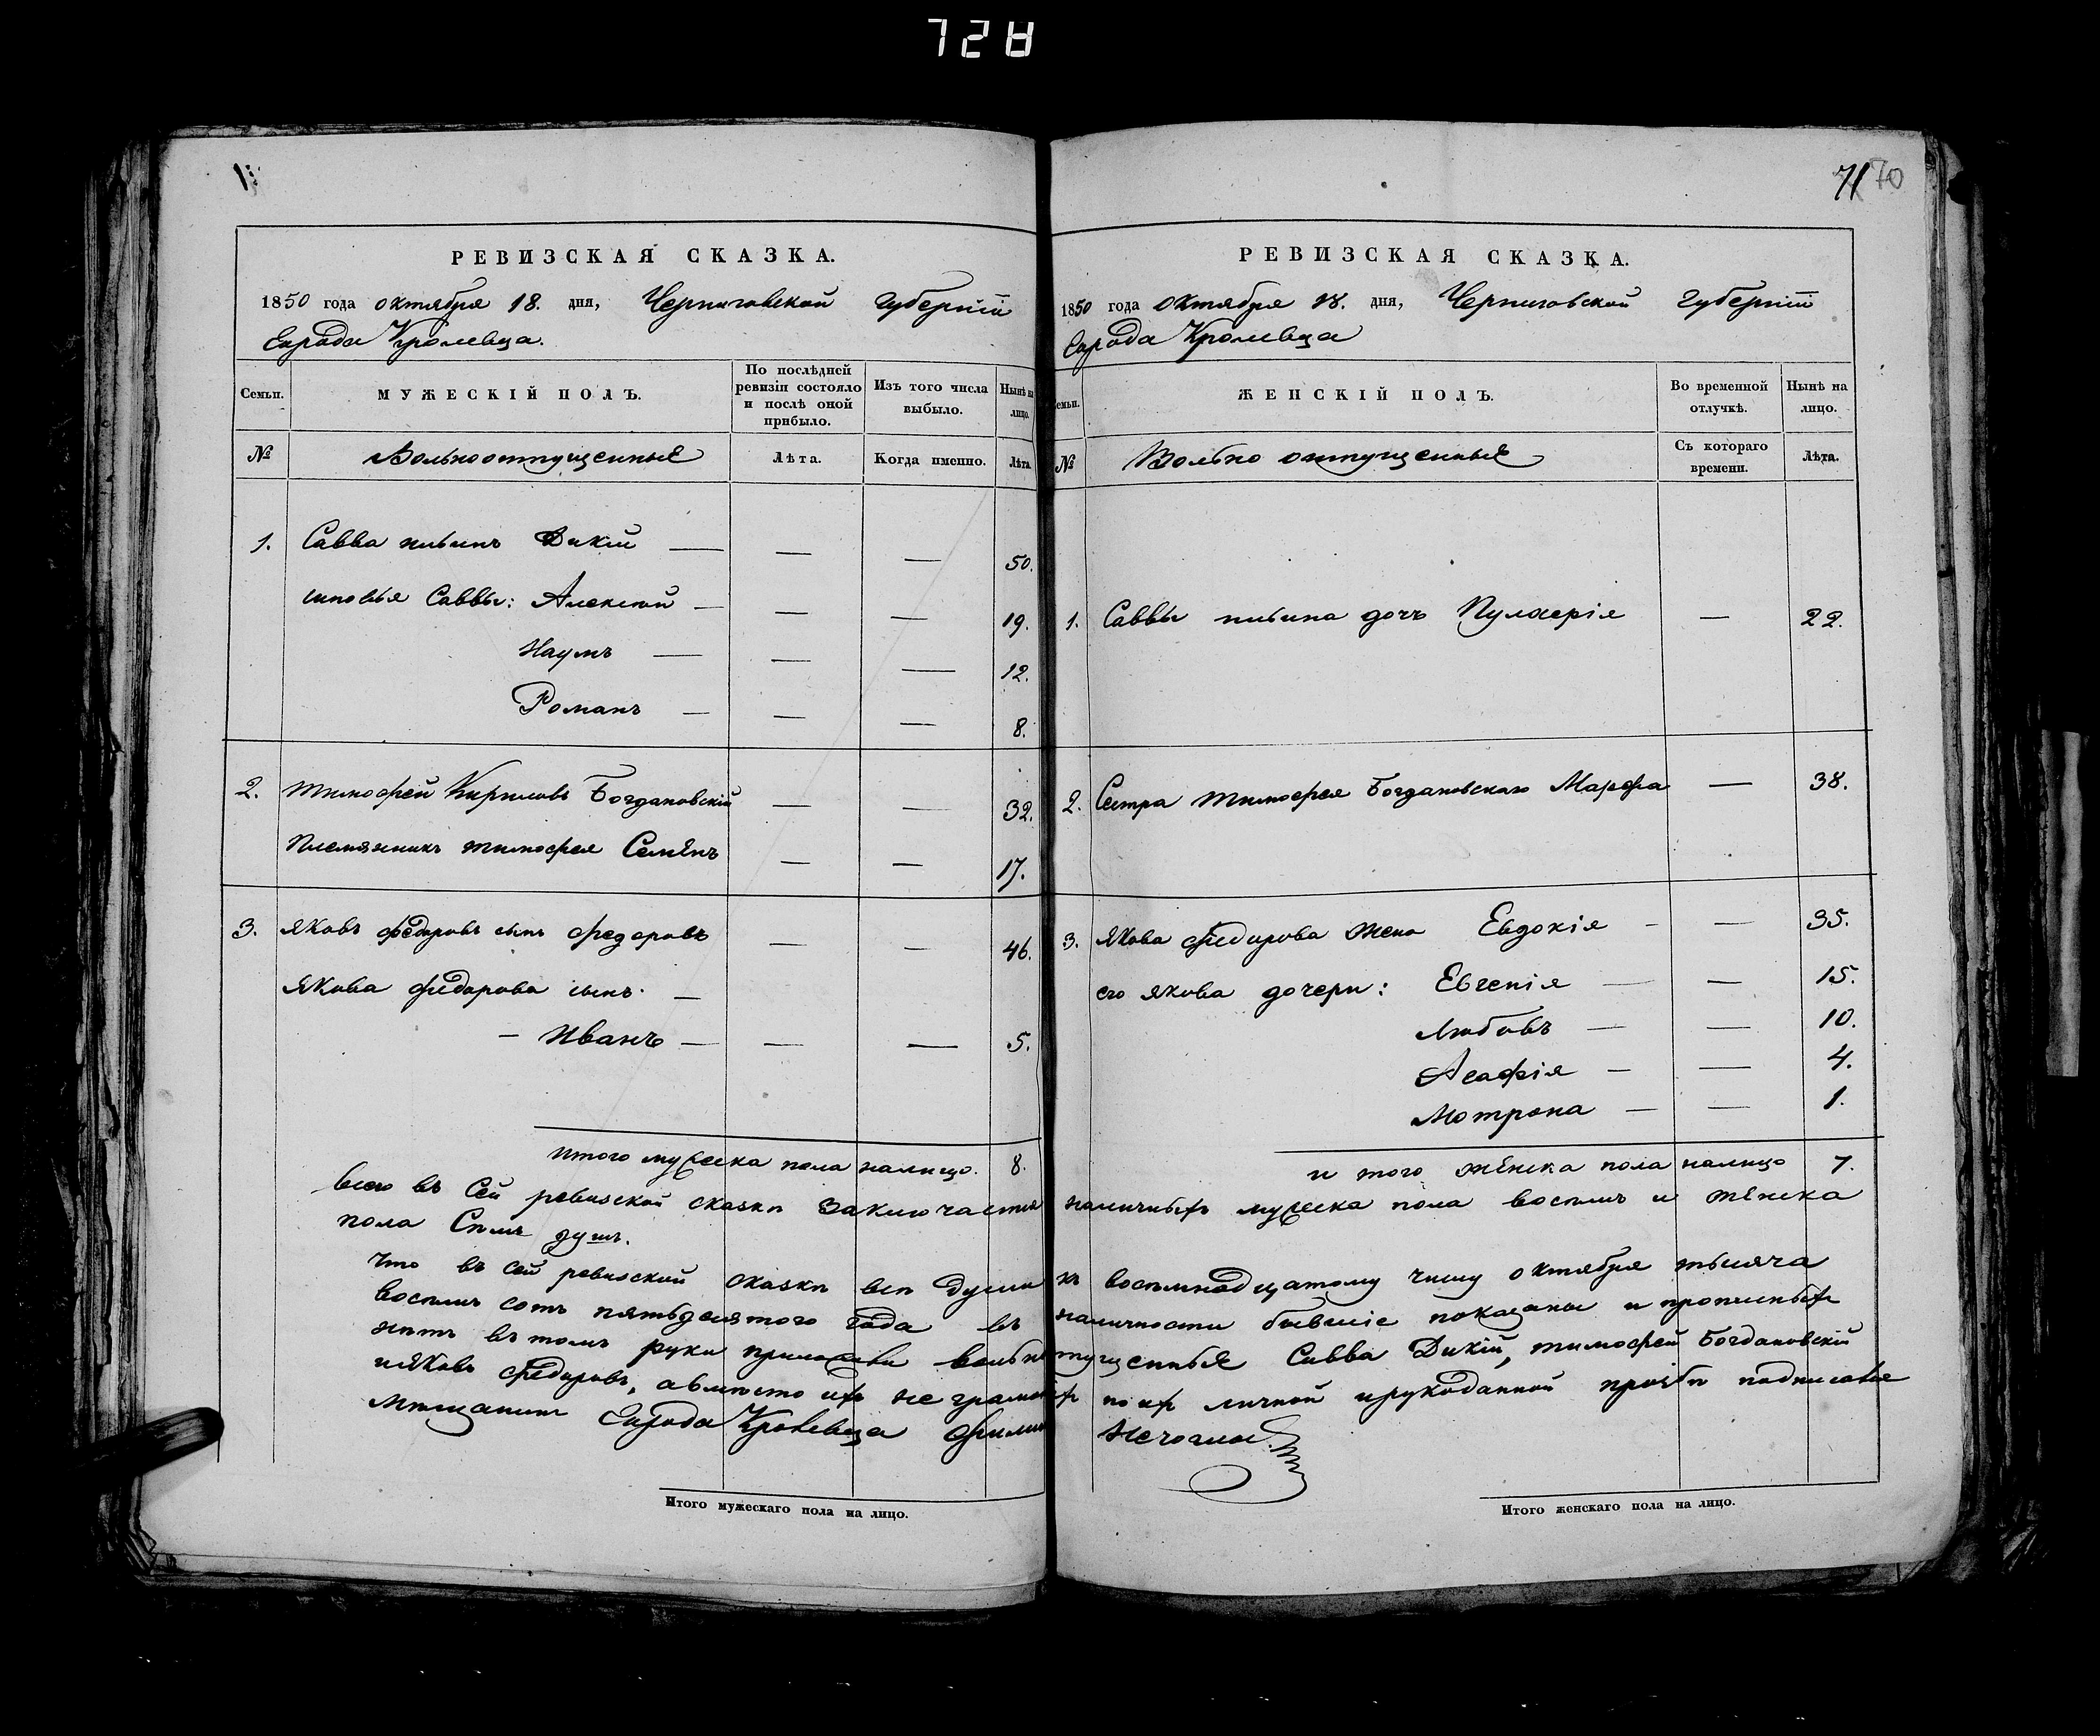 728
71 70
РЕВИЗСКАЯ СКАЗКА.
1850 года октября 18. дня, Черниговской губерніи
Города Кролевца.
Семьи.
МУЖЕСКІЙ ПОЛЪ.
По послѣдней ревизіи состояло и послѣ оной прибыло.
Изъ того числа выбыло.
Нынѣ на лицо.
№
Вольноотпущенные
Лѣта.
Когда именно.
Лѣта.
1. Савва Дикій — — — 50.
сыновья Саввы: Алексѣй — — — 19.
Наумъ — — — 12.
Романъ — — — 8.
2. Тимофей Кириловъ Богдановскій — — 32.
Племянникъ Тимофея Семенъ — — 17.
3. Яковъ Федоровъ сынъ Федоровъ — — 46.
Якова Федорова сынъ. —
— Иванъ — — — 5.
Итого мужеска пола налицо. 8.
РЕВИЗСКАЯ СКАЗКА.
1850 года октября 18. дня, Черниговской губерніи
Города Кролевца
Семьи.
ЖЕНСКІЙ ПОЛЪ.
Во временной отлучкѣ.
Нынѣ на лицо.
№
Вольно отпущенные
Съ котораго времени.
Лѣта.
1. Саввы дочь Пулхерія — 22.
2. Сестра Тимофея Богдановскаго Марфа — 38.
3. Якова Федорова жена Евдокія — — 35.
его Якова дочери: Евгенія — — 15.
Любовъ — — 10.
Агафія — — 4.
Мотрона — — 1.
и того женска пола налицо 7.
всего въ сей ревизской сказкѣ заключается наличныхъ мужеска пола восемь и женска
пола семь душъ.
Что въ сей ревизской сказкѣ всѣ души къ восемнадцатому числу октября тысяча
восемь сотъ пятьдесятого года въ наличности бывшіе показаны и прописныхъ
нѣтъ въ томъ руки приложили вольноотпущенные Савва Дикій, Тимофей Богдановскій
и Яковъ Федоровъ, а вмѣсто ихъ не грамотныхъ по ихъ личной и рукоданной прозбѣ подписався
мѣщанинъ Города Кролевца
Итого мужескаго пола на лицо.
Итого женскаго пола на лицо.